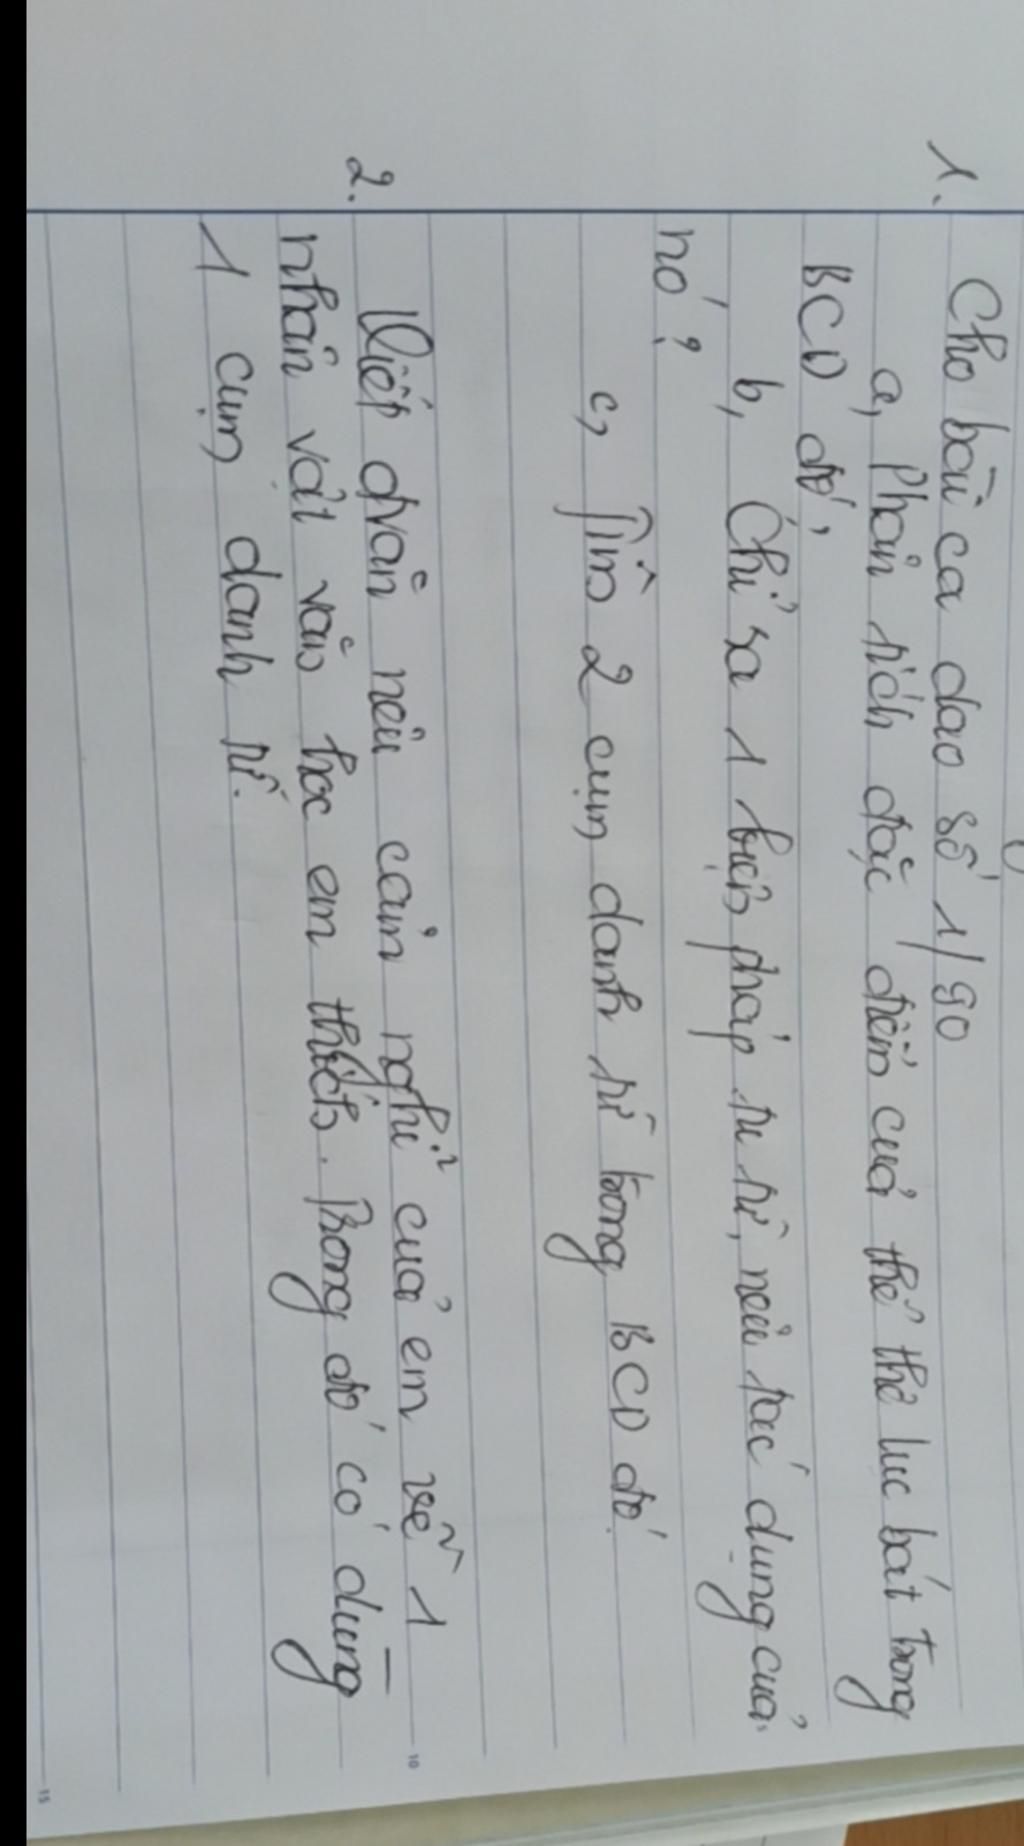 1. Cho bài ca dao số 1/90
a, Phân tích đặc điểm của thể thơ lục bát trong
BCD đó,
b, Chỉ ra 1 biện pháp tu từ, nêu tác dụng của
nó?
c, Tìm 2 cụm danh từ trong BCD đó
2. Viết đoạn nêu cảm nghĩ của em về 1
nhân vật văn học em thích. Trong đó có dùng
1 cụm danh từ.
10
15